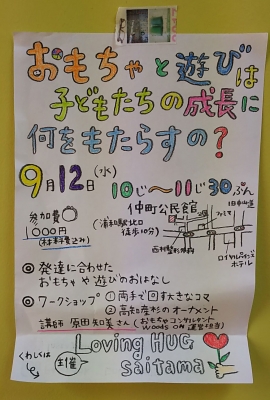 おもちゃと遊びは
子どもたちの成長に
何をもたらすの？
9月12日(水)
10じ～11じ30ぷん
参加費
1000円
(材料費込み)
仲町公民館
(浦和駅北口
徒歩10分)
旧中山道
ロイヤルパインズ
ホテル
◎ 発達に合わせた
おもちゃや遊びのおはなし
◎ ワークショップ ①両手で回す大きなコマ
②高知産杉のオーナメント
講師 原田知美さん (おもちゃコンサルタント
woods ON 運営担当)
くわしくは
主催
Loving HUG
saitama